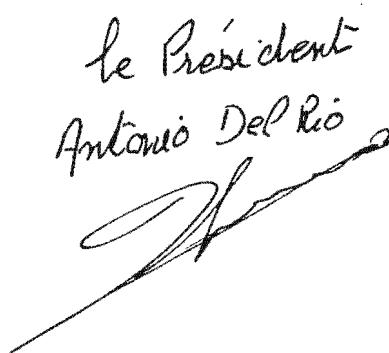 le Président
Antonio Del Rio